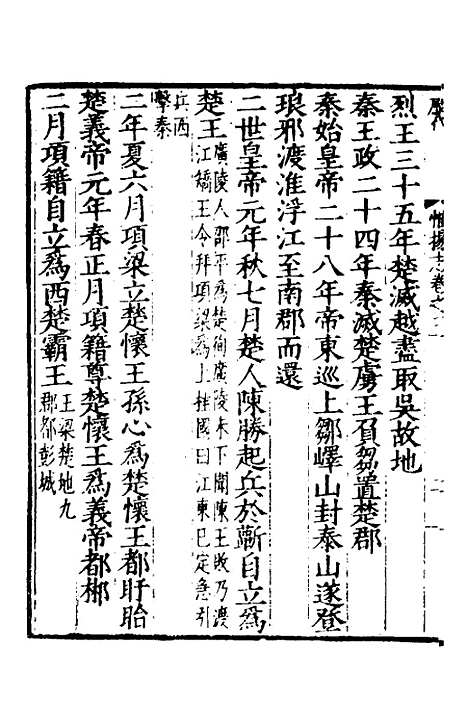 烈王三十五年楚滅越盡取吳故地
秦王政二十四年秦滅楚虜王負芻置楚郡
秦始皇帝二十八年帝東巡上鄒嶧山封泰山遂登
琅邪渡淮浮江至南郡而還
二世皇帝元年秋七月楚人陳勝起兵於蘄自立爲
楚王廣陵人邵平爲楚徇廣陵未下聞陳王敗乃渡
江矯王令拜項梁爲上柱國曰江東已定急引
兵西
擊秦
二年夏六月項梁立楚懷王孫心爲楚懷王都盱眙
楚義帝元年春正月項籍尊楚懷王爲義帝都郴
二月項籍自立爲西楚霸王王梁楚地九
郡都彭城
惟揚志卷之二